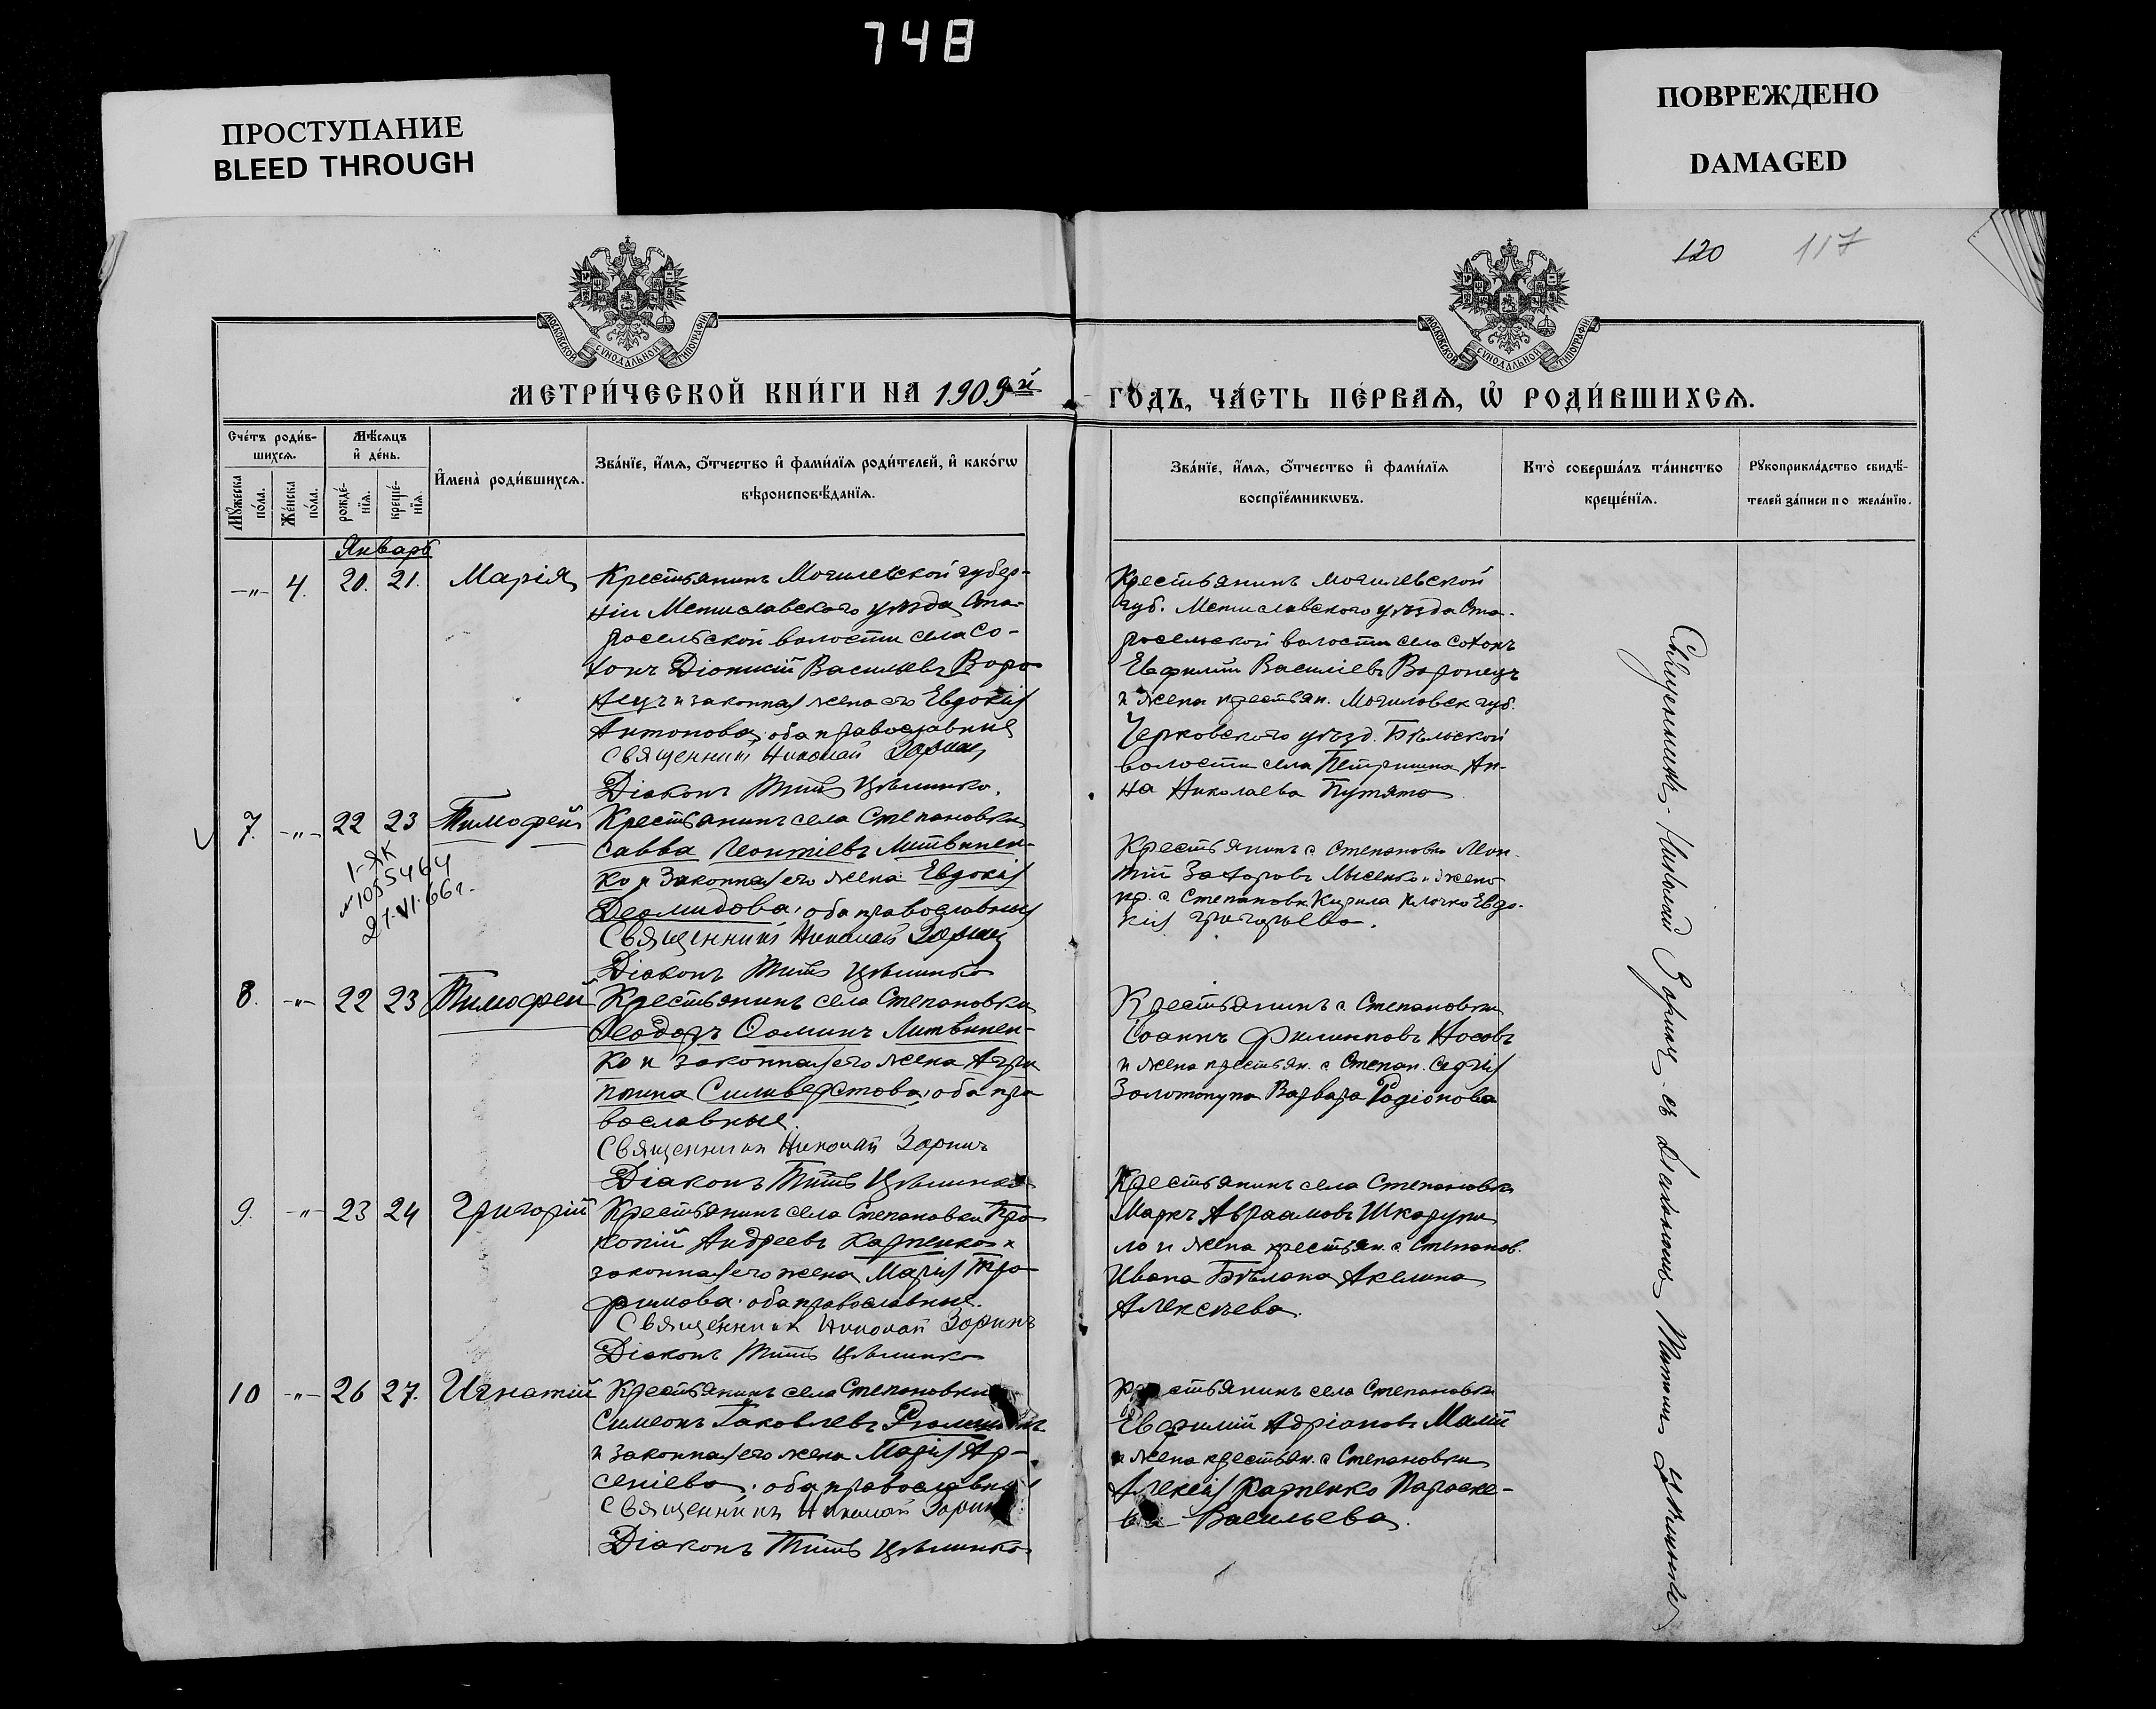 748
ПРОСТУПАНИЕ
BLEED THROUGH
ПОВРЕЖДЕНО
DAMAGED
120 117
МОСКОВСКОЙ СѴНОДАЛЬНОЙ ТИПОГРАФІИ
МОСКОВСКОЙ СѴНОДАЛЬНОЙ ТИПОГРАФІИ
МЕТРИ́ЧЕСКОЙ КНИ́ГИ НА 1909й ГО́ДЪ, ЧА́СТЬ ПЕ́РВАѦ, Ѡ҆ РОДИ́ВШИХСѦ.
Сче́тъ роди́в-
шихсѧ.
Мꙋ́жеска по́ла.
Же́нска по́ла.
Мѣ́сѧцъ
и҆ де́нь.
рожде́-
нїѧ.
креще́-
нїѧ.
И҆мена̀ роди́вшихсѧ.
Зва́нїе, и҆́мѧ, ѻ҆́тчество и҆ фами́лїѧ роди́телей, и҆ како́гѡ
вѣроисповѣ́данїѧ.
Зва́нїе, и҆́мѧ, ѻ҆́тчество и҆ фами́лїѧ
воспрїе́мникѡвъ.
Кто̀ соверша́лъ та́инство
креще́нїѧ.
Рꙋкоприкла́дство свидѣ́-
телей за́писи по жела́нїю.
Январь
-"- 4. 20. 21. Марія
Крестьянинъ Могилевской губер-
ніи Мстиславского уѣзда Ста-
росельской волости села Со-
Діонисій Васильевъ Воро-
нецъ и законная жена его Евдокія
Антонова, оба православные
Священникъ Николай Зоринъ
Діаконъ Титъ Цѣлинко.
Крестьянинъ Могилевской
губ. Мстиславского уѣзда Ста-
росельской волости села
Евфимій Василіевъ Воронецъ
и жена крестьян. Могилевск. губ.
уѣзд. Бѣльской
волости села Ан-
на Николаева Путято
7. -"- 22 23 Тимофей
1-ЯК
№1055464
27.VI.66г.
Крестьянинъ села Степановки
Савва Леонтіевъ Литвинен-
ко и законная его жена Евдокія
Деомидова, оба православные
Священникъ Николай Зоринъ
Діаконъ Титъ Цѣлинко
Крестьянинъ с. Степановки Леон-
тій Захаровъ Лысенко и жена
кр. с. Степановки Кирила Клочко Евдо-
кія Григорьева.
8. -"- 22 23 Тимофей
Крестьянинъ села Степановки
Ѳеодоръ Ѳоминъ Литвинен-
ко и законная его жена Агри
пина Сильверстова, оба пра
вославные.
Священникъ Николай Зоринъ
Діаконъ Титъ Цѣлинко
Крестьянинъ с. Степановки
Іоаннъ Филипповъ Носовъ
и жена крестьян. с. Степан. Сергія
Золотопупа Варвара Родіонова
9. -"- 23 24 Григорій
Крестьянинъ села Степановки Про
копій Андреевъ Карпенко и
законная его жена Марія Тро
фимова, оба православные.
Священникъ Николай Зоринъ
Діаконъ Титъ Цѣлинко
Крестьянинъ села Степановки
Маркъ Авраамовъ Шкарупи
ло и жена крестьян. с. Степанов.
Ивана Бѣлана Акелина
Алексѣева.
10 -"- 26 27. Игнатій
Крестьянинъ села Степановки
Симеонъ Іаковлевъ
и законная его жена Марія Ар-
сеніева, оба православные
Священникъ Николай Зоринъ
Діаконъ Титъ Цѣлинко
Крестьянинъ села Степановки
Евфимій Адріановъ Малій
и жена крестьян. с. Степановки
Алексія Карпенко Параске-
ва Васильева.
Священникъ Николай Зоринъ съ діакономъ Титомъ Цѣлинко